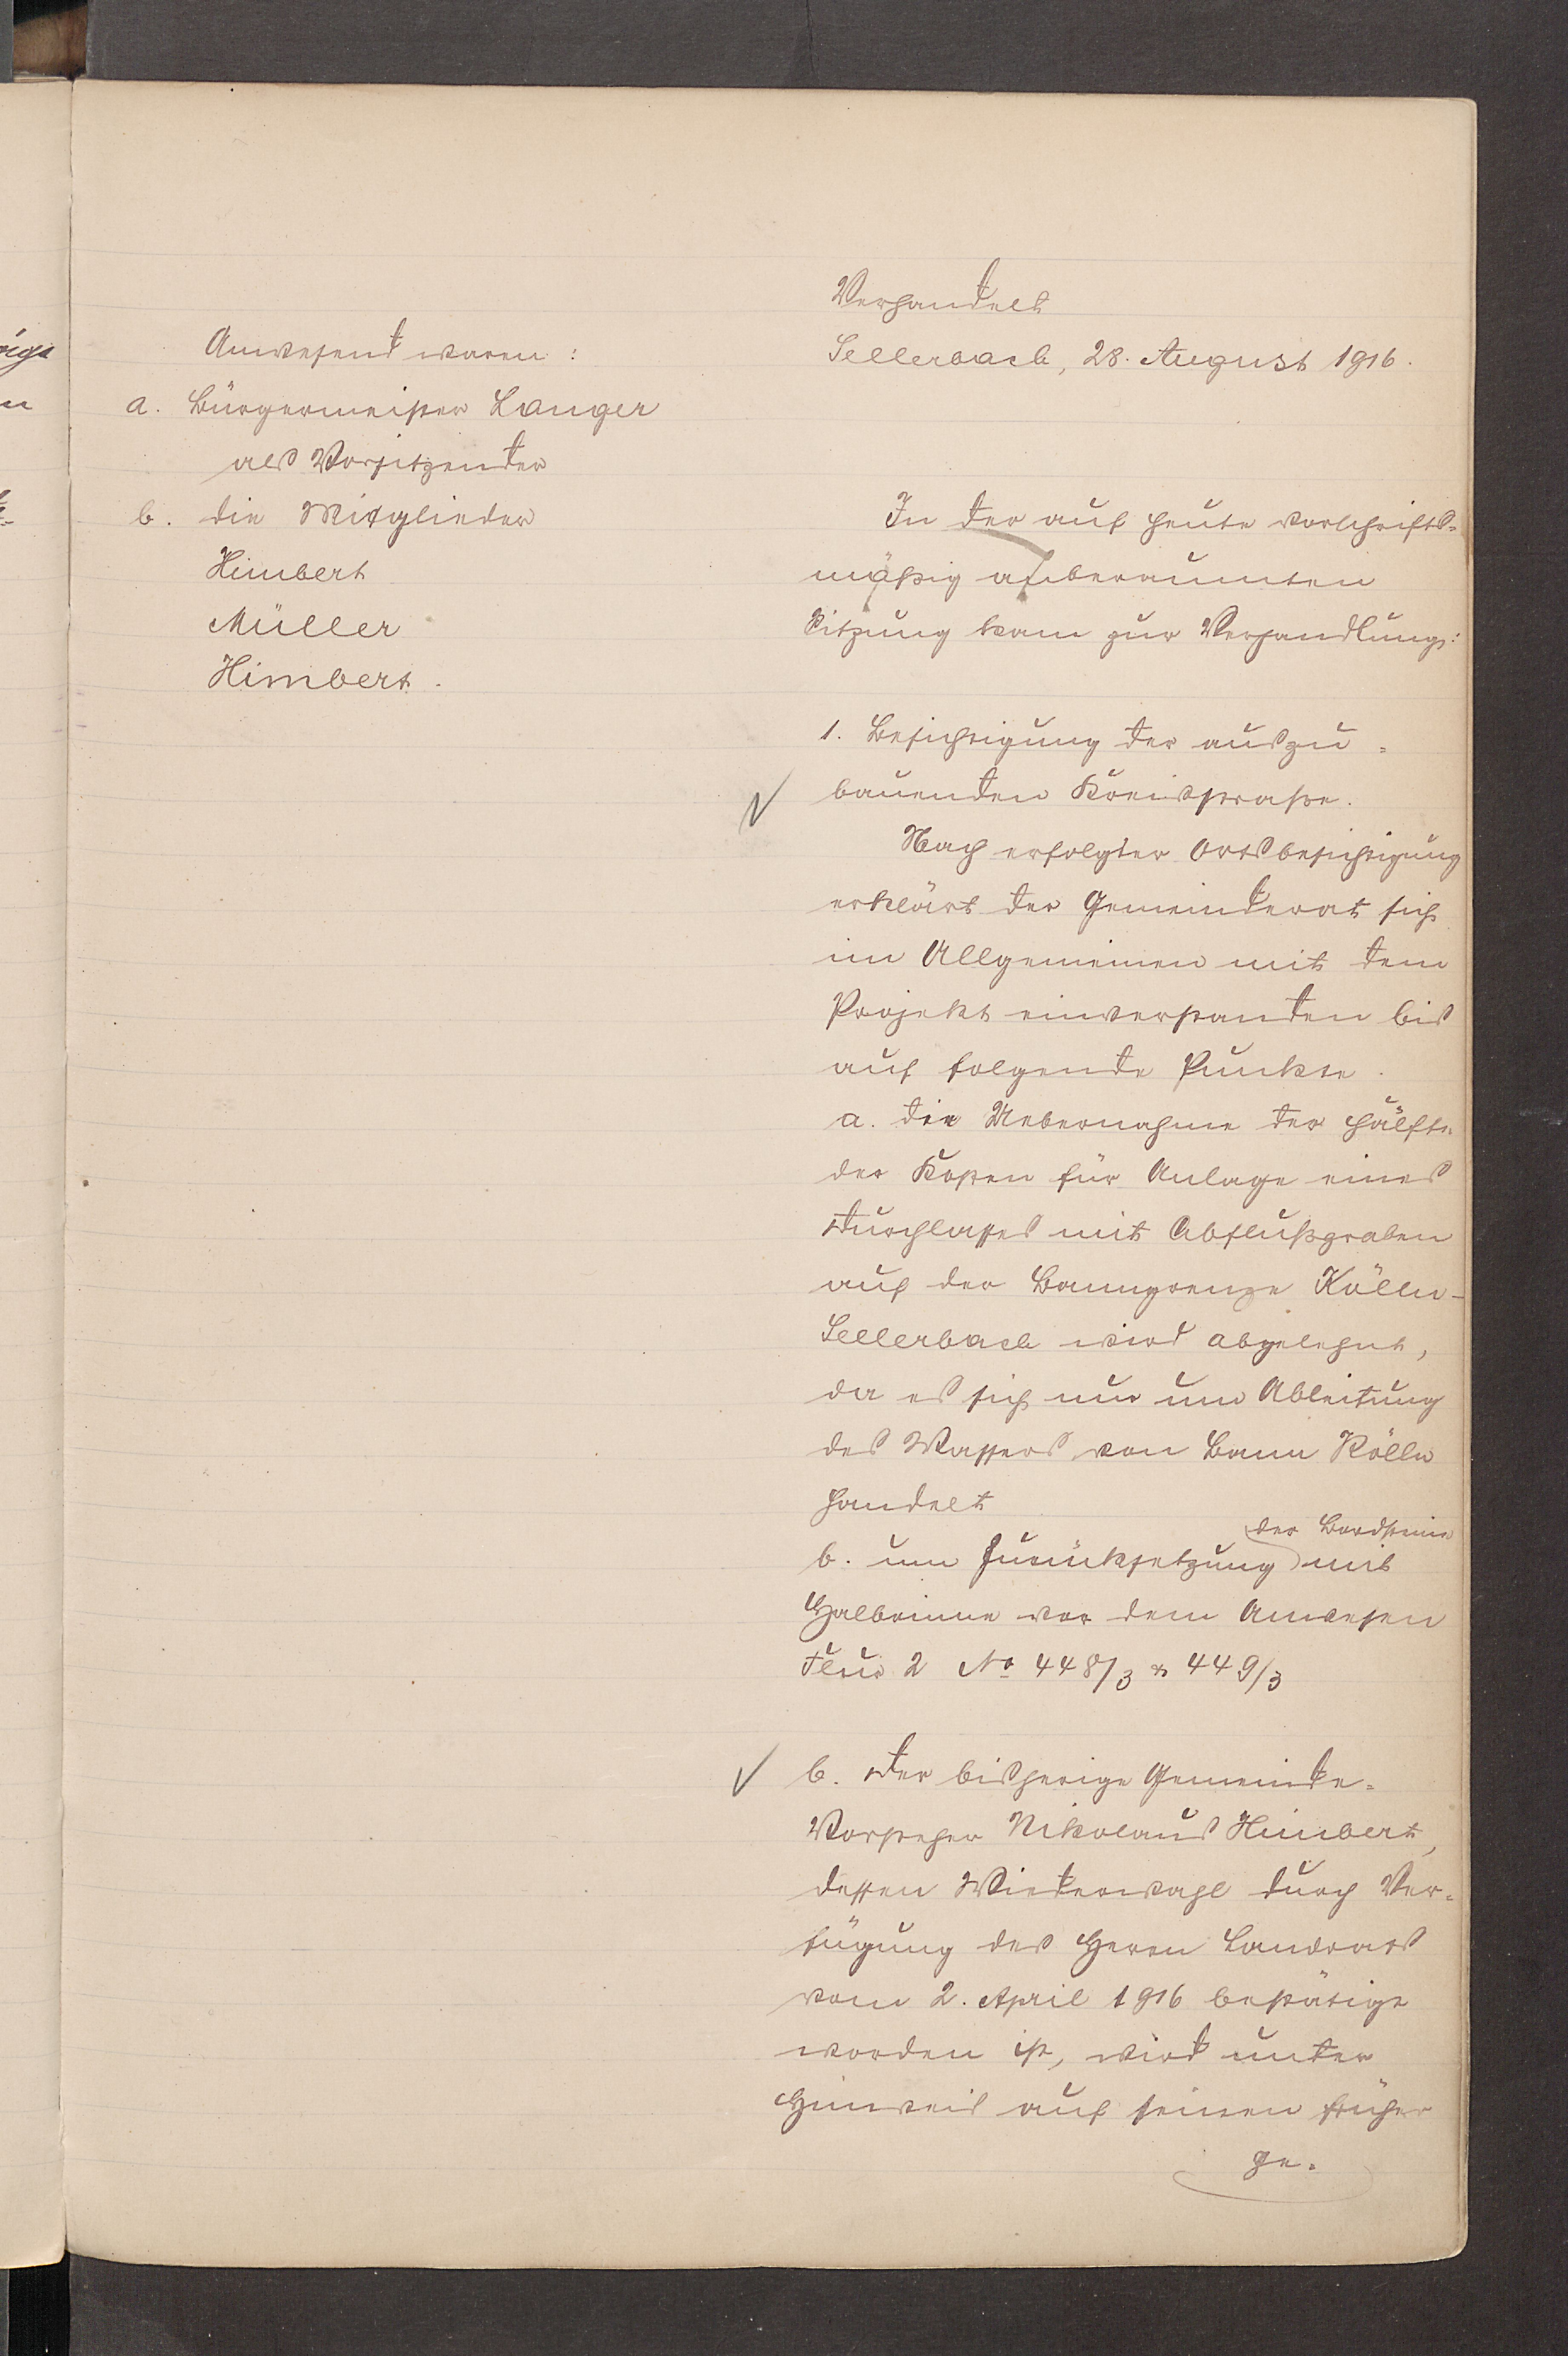 Anwesend waren:
a. Bürgermeister Langer
als Vorsitzender
b. die Mitglieder
Himbert
Müller
Himbert.
Verhandelt
Sellerbach, 28. August 1916.
In der auf heute vorschrifts-
mäßig anberaumten
Sitzung kam zur Verhandlung:
1. Besichtigung der auszu-
bauenden Kreisstraße.
Nach erfolgter Ortsbesichtigung
erklärt der Gemeinderat sich
im Allgemeinen mit dem
Projekt einverstanden bis
auf folgende Punkte.
a. die Uebernahme der Hälfte
der Kosten für Anlage eines
Durchlasses mit Abflußgraben
auf der Banngrenze Kölln-
Sellerbach wird abgelehnt,
da es sich nur um Ableitung
des Wassers von Bann Kölln
handelt
der Bordsteine
b. um Zurücksetzung mit
Halbrinne vor dem Anwesen
Flur 2 No 448/3 & 449/3
b. Der bisherige Gemeinde-
Vorsteher Nikolaus Himbert,
dessen Wiederwahl durch Ver-
fügung des Herrn Landrats
vom 2. April 1916 bestätigt
worden ist, wird unter
Hinweis auf seinen früher
ge-